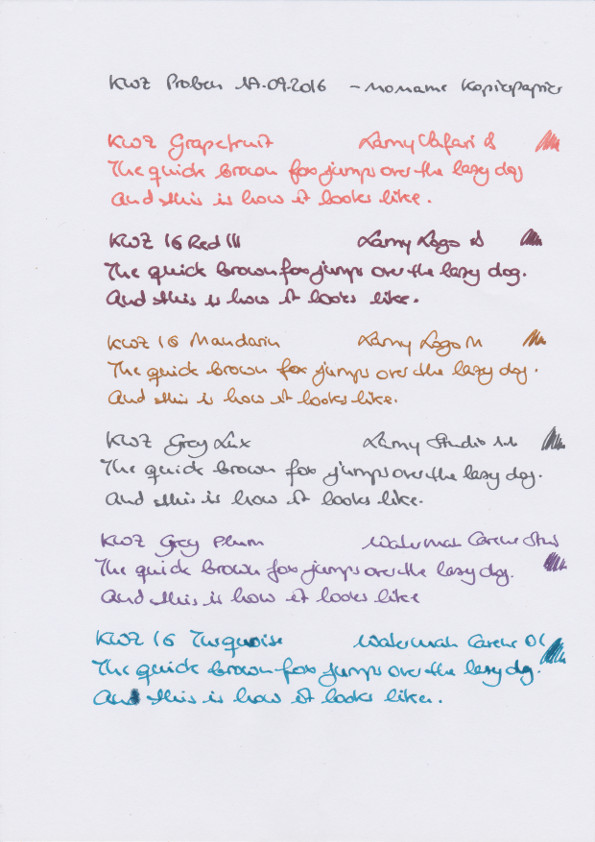 KWZ Proben 17.09.2016 - noname Kopierpapier
KWZ Grapefruit Lamy Safari B
The quick brown fox jumps over the lazy dog
And this is how it looks like.
KWZ IG Red III Lamy Logo B
The quick brown fox jumps over the lazy dog.
And this is how it looks like.
KWZ IG Mandarin Lamy Logo M
The quick brown fox jumps over the lazy dog.
And this is how it looks like.
KWZ Grey Lux Lamy Studio 1.1
The quick brown fox jumps over the lazy dog.
And this is how it looks like.
KWZ Grey Plum Waterman Carene Stub
The quick brown fox jumps over the lazy dog.
And this is how it looks like
KWZ IG Turquoise Waterman Carene
The quick brown fox jumps over the lazy dog.
And this is how it looks like.